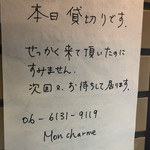 本日貸切りです。
せっかく来て頂いたのに
すみません。
次回お待ちして居ります。
06-6131-9119
Mon charme